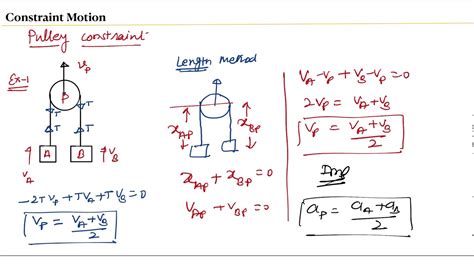 Constraint Motion
Pulley constraint
Ex-1
V_P
P
T T
T T
A B
V_A V_B
-2TV_P + TV_A + TV_B = 0
V_P = (V_A + V_B)/2
Length method
x_AP x_BP
x_AP + x_BP = 0
V_AP + V_BP = 0
V_A - V_P + V_B - V_P = 0
2V_P = V_A + V_B
V_P = (V_A + V_B)/2
Imp
a_P = (a_A + a_B)/2